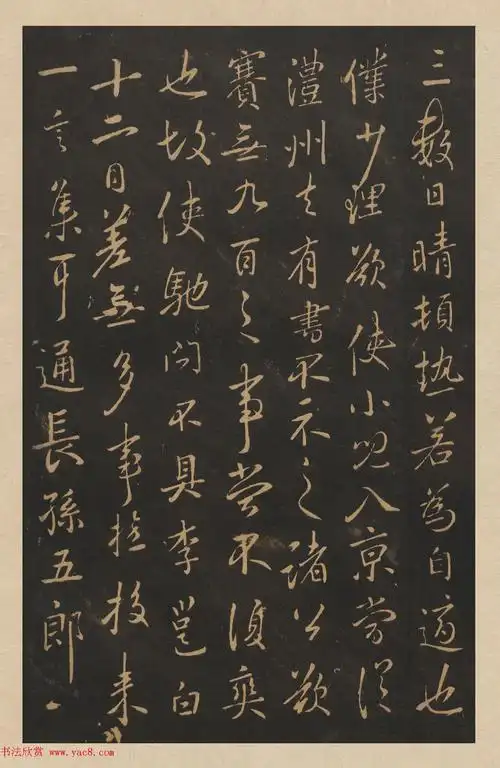 三數日晴頓熱若為自適也
僕少理欲使小兒入京當從
澧州去有書不示之諸公欲
賽無九百之事當不復爽
也故使馳問不具李邕白
十二日羌無多事投來
一言集耳通長孫五郎
书法欣赏 www.yac8.com